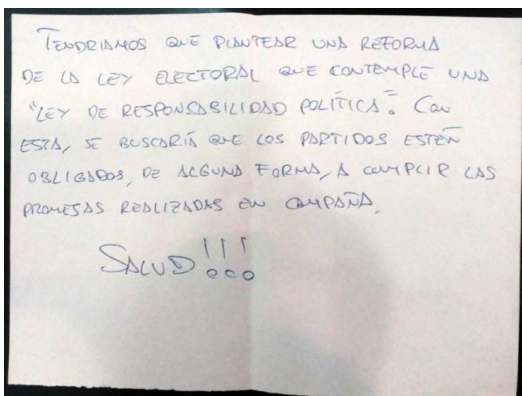 TENDRIAMOS QUE PLANTEAR UNA REFORMA
DE LA LEY ELECTORAL QUE CONTEMPLE UNA
"LEY DE RESPONSABILIDAD POLÍTICA". CON
ESTA, SE BUSCARÍA QUE LOS PARTIDOS ESTÉN
OBLIGADOS, DE ALGUNA FORMA, A CUMPLIR LAS
PROMESAS REALIZADAS EN CAMPAÑA.
SALUD!!!